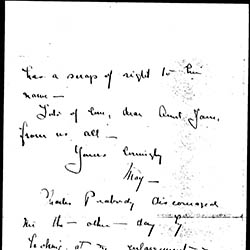 has a scrap of right to her
name —
Lots of love, dear Aunt Jane,
from us all —
Yours lovingly
May —
Peabody discouraged
me the other day by
looking at my